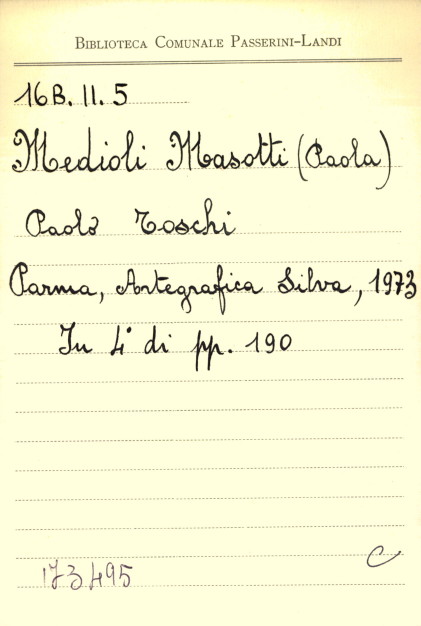 BIBLIOTECA COMUNALE PASSERINI-LANDI
16B. II. 5
Medioli Masotti (Paola)
Paolo Toschi
Parma, Artegrafica Silva, 1973
In 4° di pp. 190
C
173495